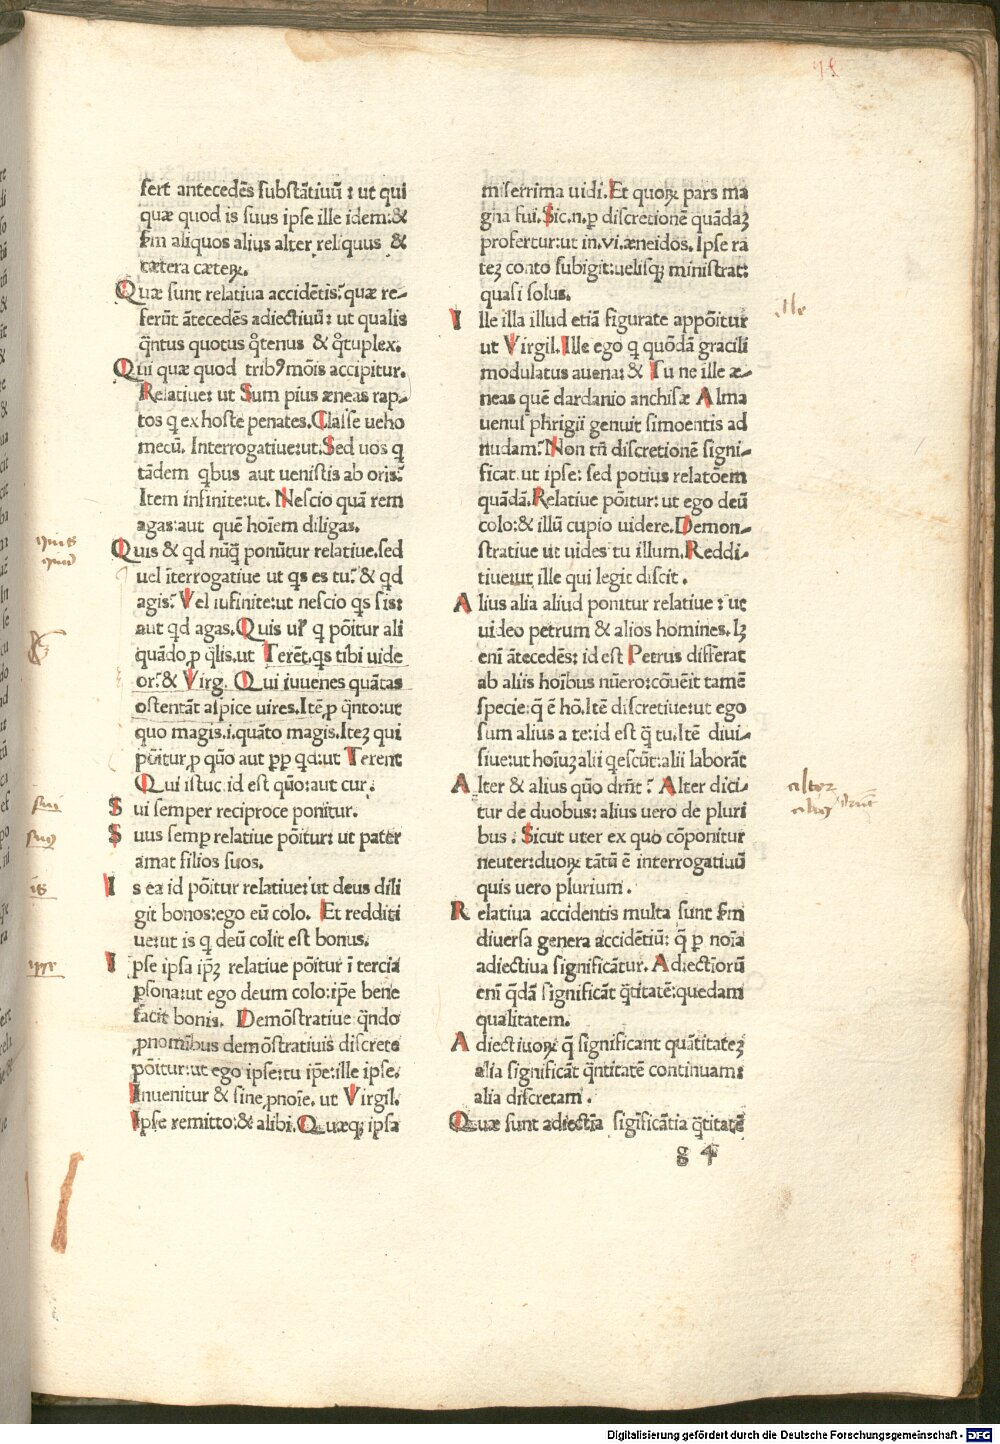 fert antecedēs ſubſtātiuū : ut qui
quæ quod is ſuus ipſe ille idem:&
ſm aliquos alius alter reliquus &
cætera cæteꝝ.
Quæ ſunt relatiua accidētis: quæ re-
ferūt ātecedēs adiectiuū: ut qualis
q̄ntus quotus q̊tenus & q̊tuplex.
Qui quæ quod tribꝰ mōis accipitur.
Relatiue: ut Sum pius æneas rap-
tos q ex hoſte penates. Claſſe ueho
mecū. Interrogatiue:ut. Sed uos q
tādem qbus aut ueniſtis ab oris?
Item infinite:ut. Neſcio quā rem
agas:aut quē hoīem diligas.
Quis & qd nūq̄ ponūtur relatiue.ſed
uel īterrogatiue ut qs es tu? & qd
agis? Vel iufinite:ut neſcio qs ſis:
aut qd agas. Quis ul̄ q pōitur ali
quādo ꝓ q̄lis.ut Terēt.qs tibi uide
or? & Virg. Qui iuuenes quātas
oſtentāt aſpice uires. Itē ꝓ q̄nto:ut
quo magis.i.quāto magis. Iteꝫ qui
pōitur ꝓ quō aut ꝓp qd:ut Terent
Qui iſtuc id est quō:aut cur.
Sui ſemper reciproce ponitur.
Suus ſemp relatiue pōitur: ut pater
amat filios ſuos.
Is ea id pōitur relatiue: ut deus dili
git bonos:ego eū colo. Et redditi
ue:ut is q deū colit eſt bonus.
Ipſe ipſa ip̄ꝫ relatiue pōitur ī tercia
pſona:ut ego deum colo:ip̄e bene
facit bonis. Demōſtratiue q̄ndo
ꝓnomībus demōſtratiuis diſcrete
pōitur:ut ego ipſe:tu ip̄e:ille ipſe.
Inuenitur & ſine ꝓnoīe. ut Virgil.
Ipſe remitto:& alibi. Quæqꝫ ipſa
miſerrima uidi. Et quoꝝ pars ma
gna fui. Sic.n.ꝑ diſcretionē quādaꝫ
profertur:ut in.vi.æneidos. Ipſe ra
teꝫ conto ſubigit:ueliſqꝫ miniſtrat:
quaſi ſolus.
Ille illa illud etiā figurate appōitur
ut Virgil. Ille ego q quōdā gracili
modulatus auena: & Tu ne ille æ-
neas quē dardanio anchiſæ Alma
uenuſ phrigii genuit ſimoentis ad
nudam? Non tn̄ diſcretionē ſigni-
ficat ut ipſe: ſed potius relatōem
quādā. Relatiue pōitur: ut ego deū
colo:& illū cupio uidere. Demon-
ſtratiue ut uides tu illum. Reddi-
tiue:ut ille qui legit diſcit.
Alius alia aliud ponitur relatiue : ut
uideo petrum & alios homines. lꝫ
enī ātecedēs: id est Petrus differat
ab aliis hoībus nūero:cōuēit tamē
ſpecie:q̄ ē hō. Itē diſcretiue:ut ego
ſum alius a te:id eſt q̄ tu. Itē diui-
ſiue:ut hoīuꝫ alii qeſcūt:alii laborāt
Alter & alius quō dr̄nt ? Alter dici-
tur de duobus: alius uero de pluri
bus . Sicut uter ex quo cōponitur
neuter:duoꝝ tātū ē interrogatiuū
quis uero plurium.
Relatiua accidentis multa ſunt ſm
diuerſa genera accidētiū: q̄ ꝑ noīa
adiectiua ſignificātur. Adiectīorū
enī q̄dā ſignificāt q̄titatē:quedam
qualitatem.
Adiectiuoꝝ q̄ ſignificant quātitateꝫ
alia ſignificāt q̄ntitatē continuam:
alia diſcretam.
Quæ ſunt adiectīa ſigīficātia q̄titatē
g 4
quis
quid
sui
suus
is
ipse
ille
alter
alius
Digitalisierung gefördert durch die Deutsche Forschungsgemeinschaft - DFG